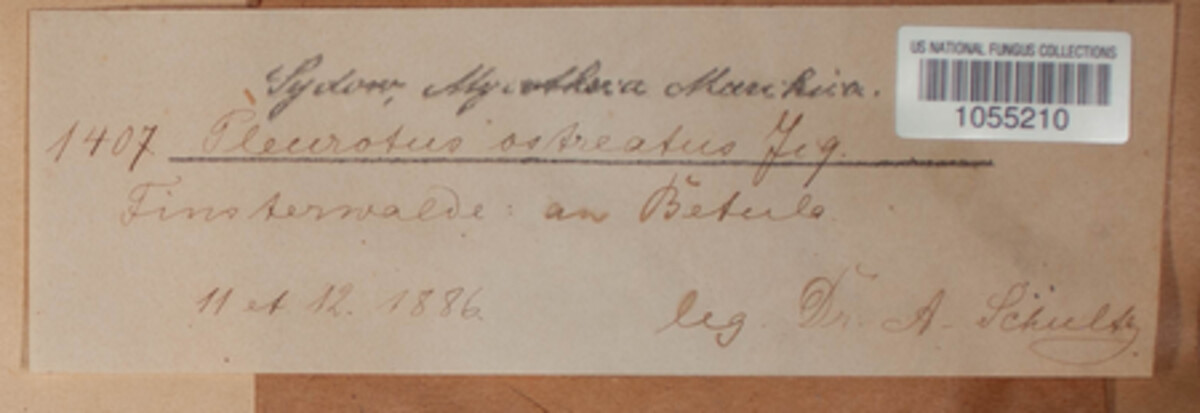 US NATIONAL FUNGUS COLLECTIONS
1055210
Sydow, Mycotheca Marchica.
1407 Pleurotus ostreatus Jcq.
Finsterwalde: an Betula
11 et 12. 1886.
leg. Dr. A. Schultz